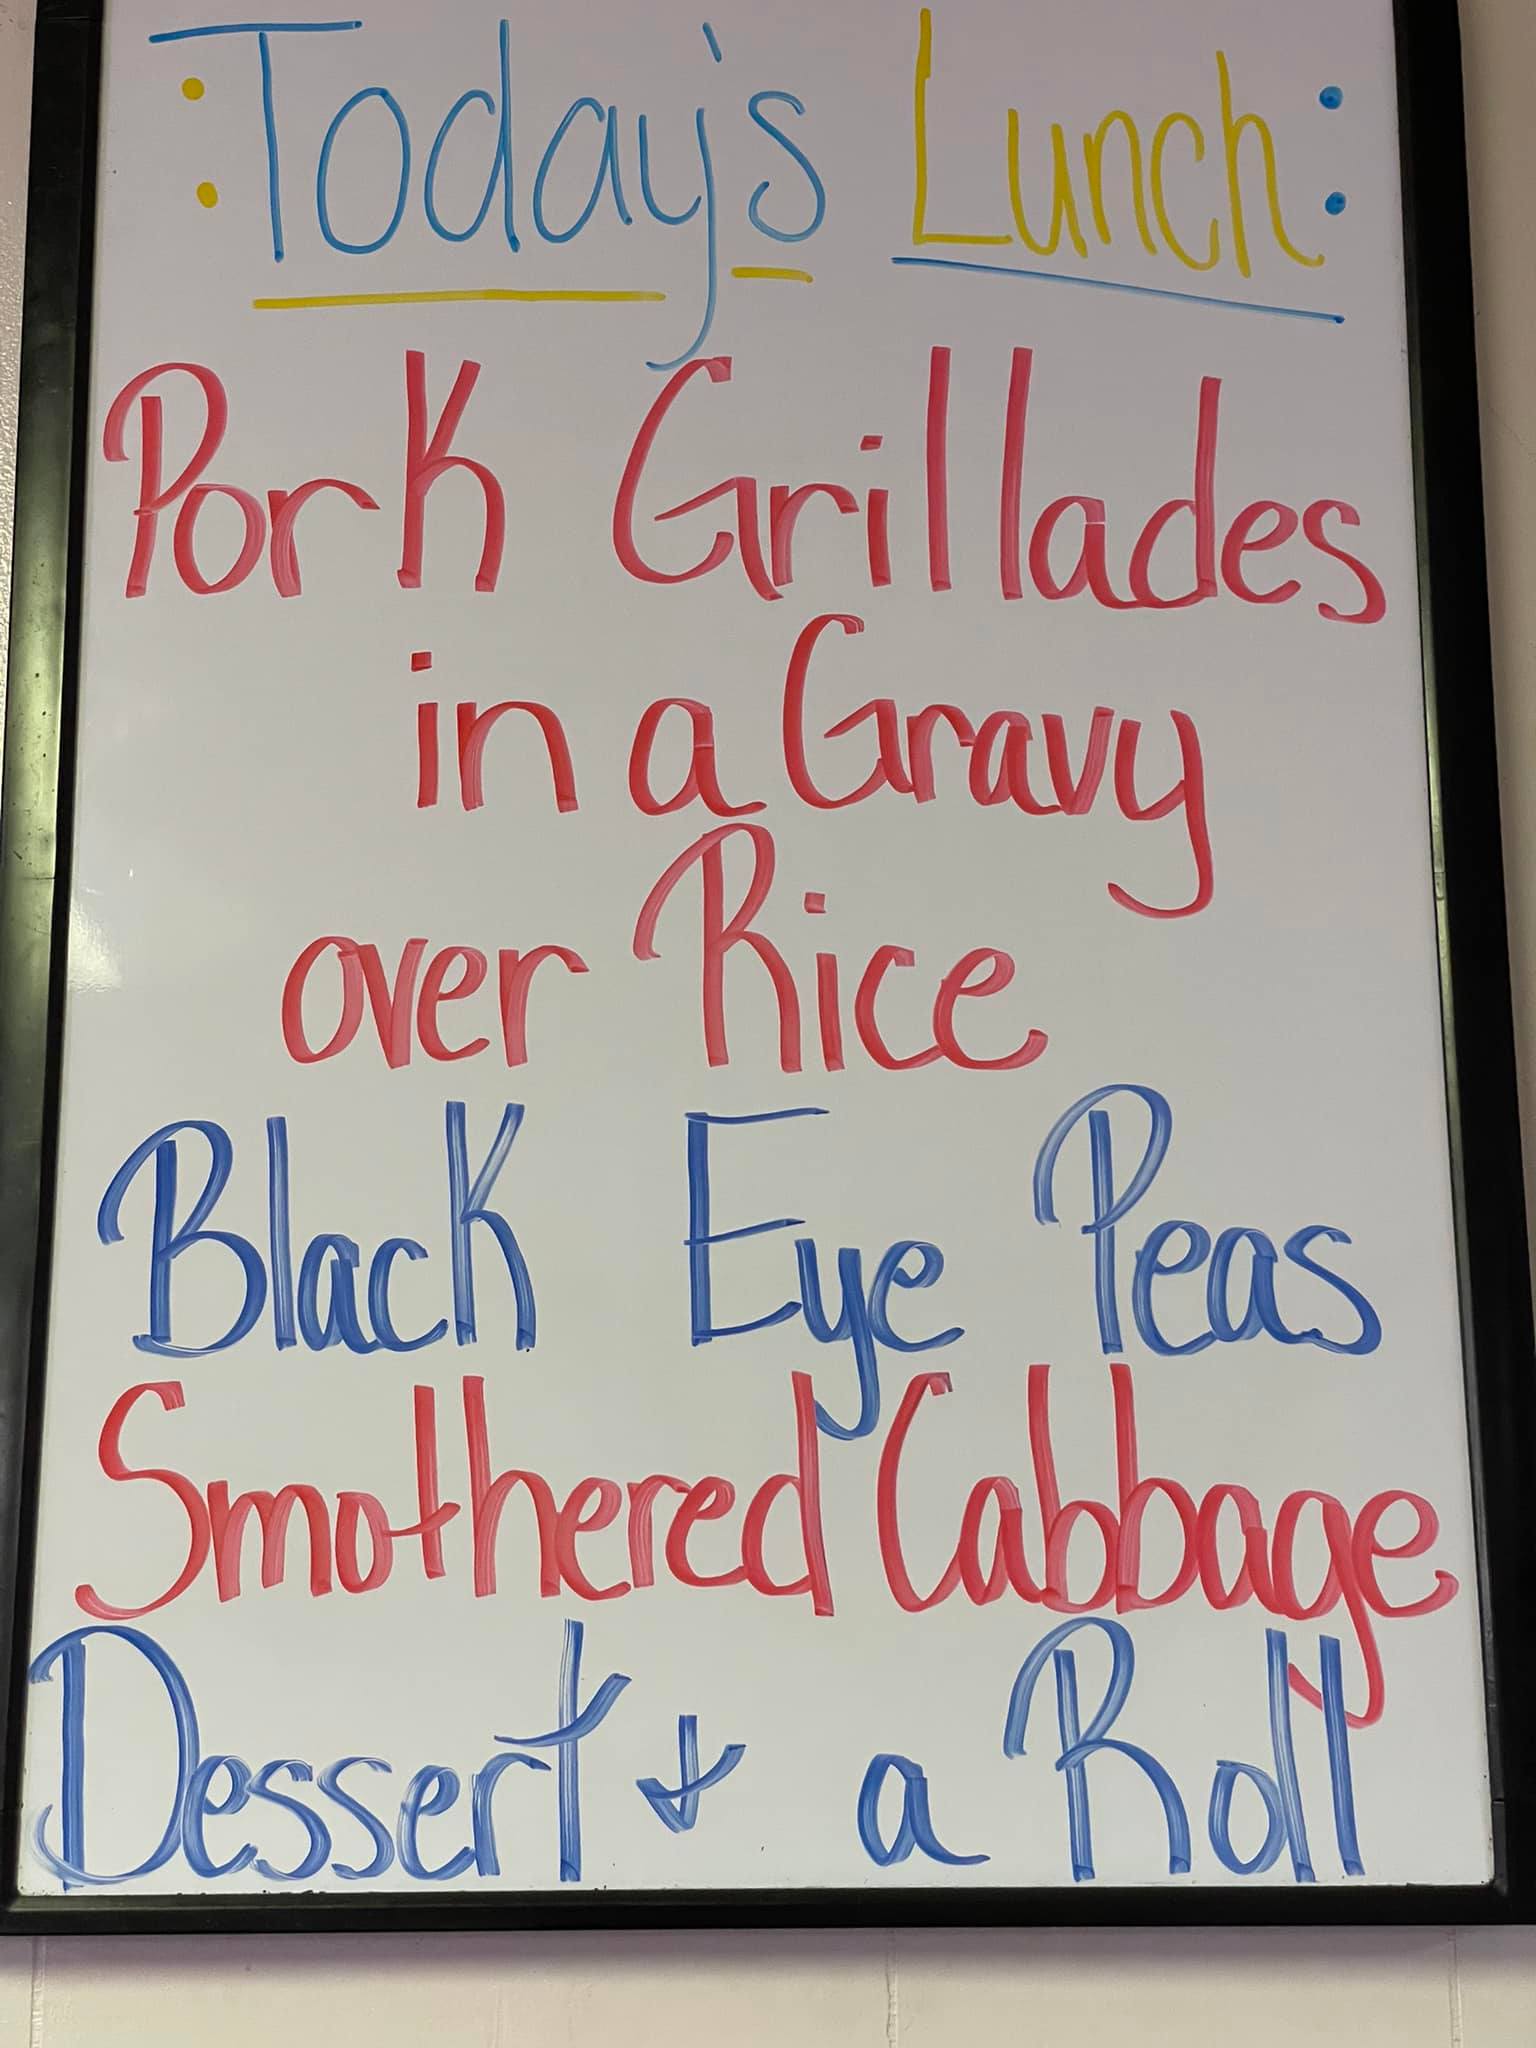 :Today's Lunch:
Pork Grillades
in a Gravy
over Rice
Black Eye Peas
Smothered Cabbage
Dessert + a Roll